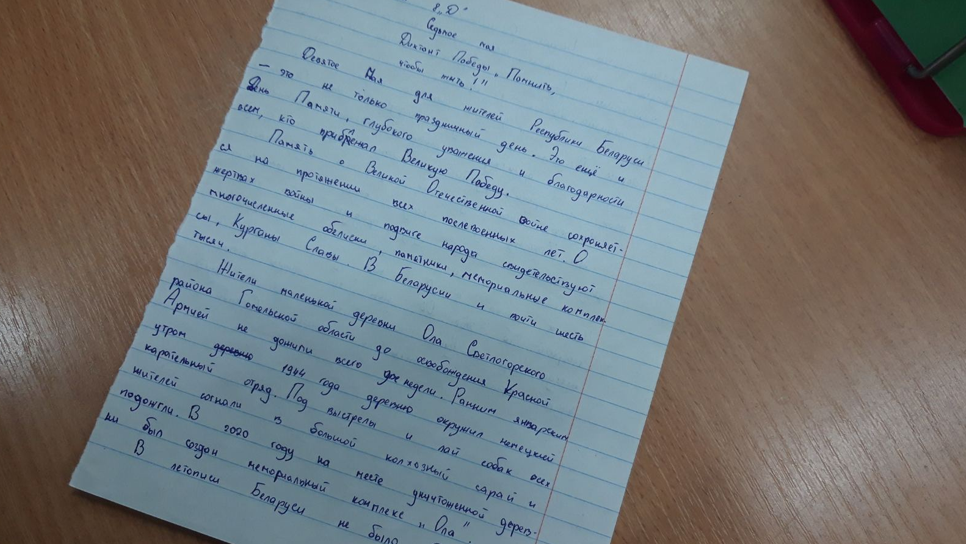 8 „Д"
Седьмое мая
Диктант Победы „Помнить,
чтобы жить!"
Девятое Мая для жителей Республики Беларуси
– это не только праздничный день. Это ещё и
День Памяти, глубокого уважения и благодарности
всем, кто приближал Великую Победу.
Память о Великой Отечественной войне сохраняет-
ся на протяжении всех послевоенных лет. О
жертвах войны и подвиге народа свидетельствуют
многочисленные обелиски, памятники, мемориальные комплек
сы, Курганы Славы. В Беларусии и почти шесть
тысяч.
Жители маленькой деревни Ола Светлогорского
района Гомельской области до освобождения Красной
Армией не дожили всего две недели. Ранним январским
утром деревню 1944 года деревню окружил немецкий
карательный отряд. Под выстрелы и лай собак всех
жителей согнали в большой колхозный сарай и
подожгли. В 2020 году на месте уничтоженной дерев-
ни был создан мемориальный комплекс „Ола".
В летописи Беларуси не было